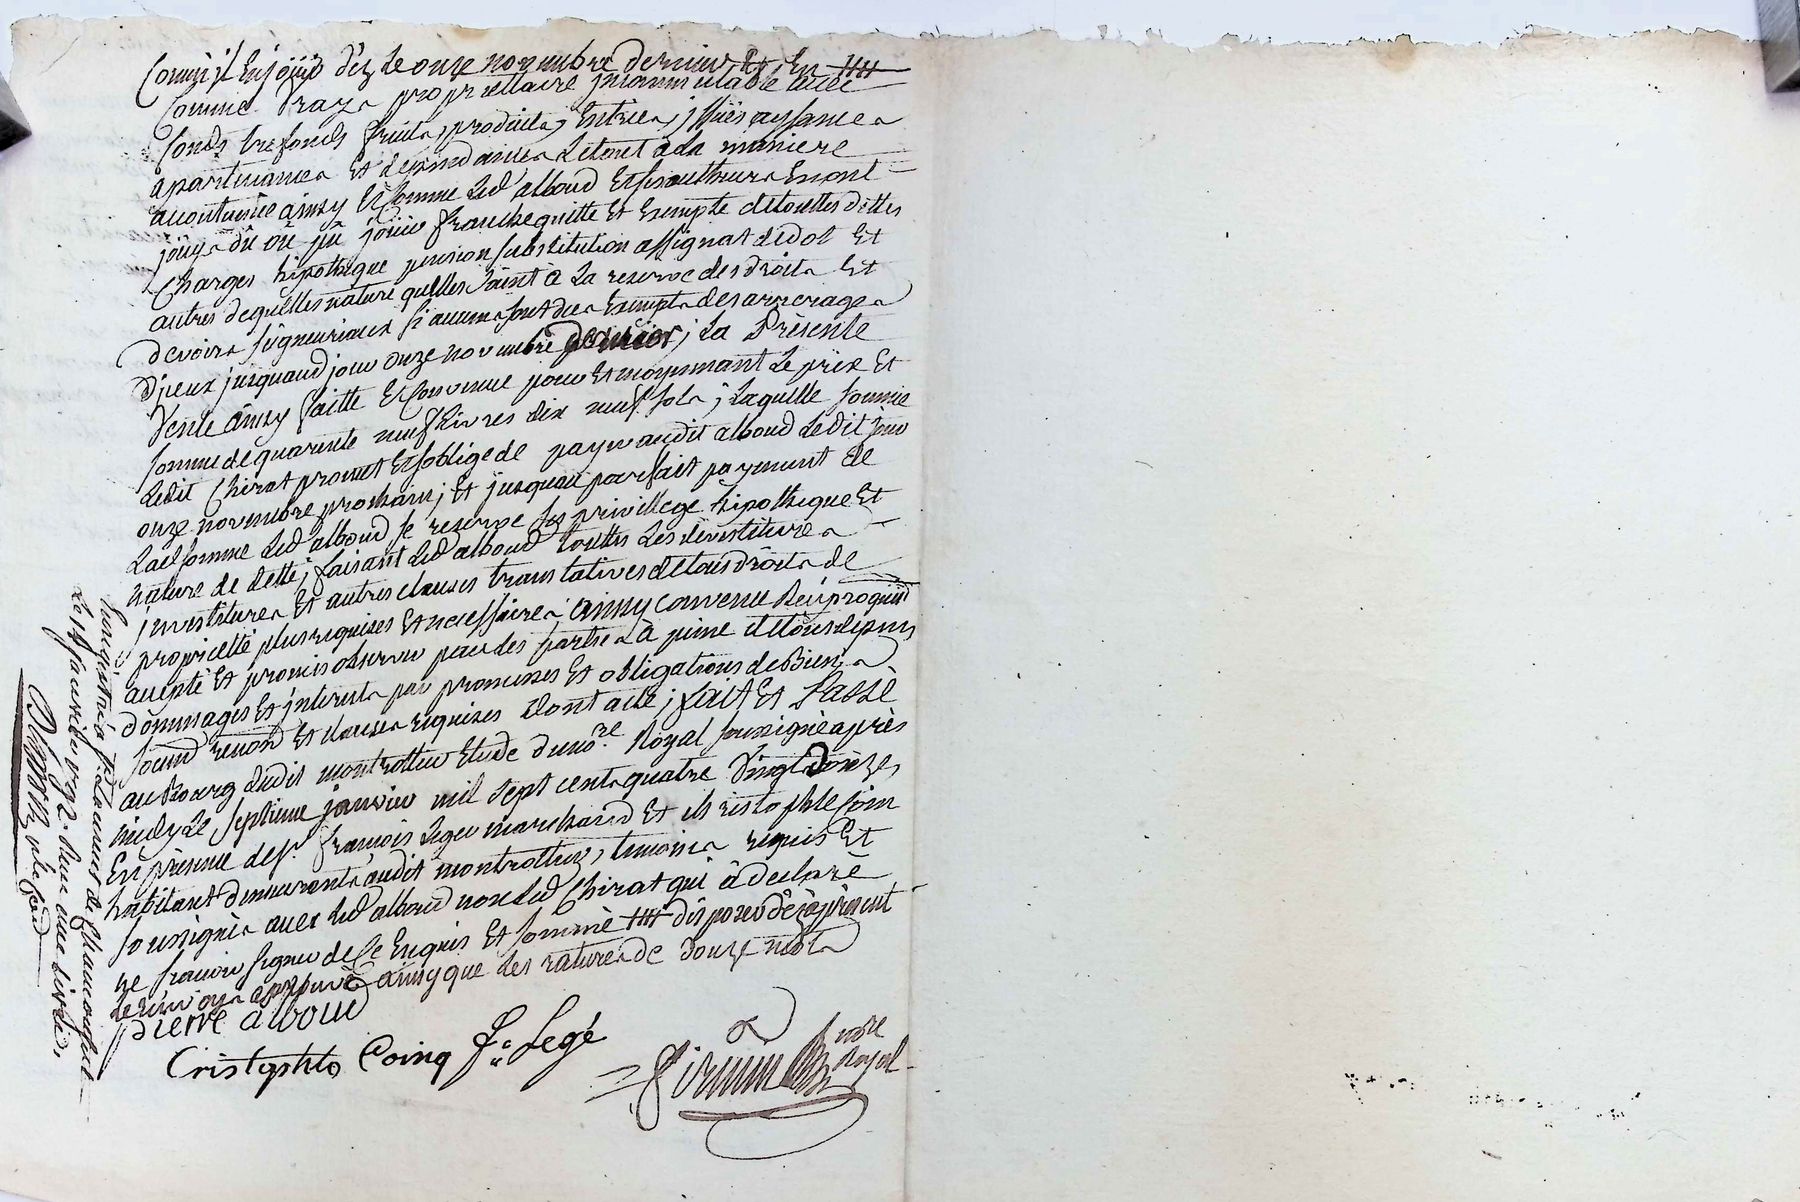 Comme il En jouÿs dez le onze novembre dernier Et En
comme vrays propriettaire jncommutable avec
fonds tresfonds fruits, produits, Entrées, jssües aysances
apartenances Et dependances Letout ala maniere
acoutumée ainsy Et Comme Led alboud Et ses autheurs En ont
joüys dû où pû joüir franche quitte Et Exempte detouttes dettes
Charges hipotheque pension substitution assignat dedot Et
autres de quelles nature quelles soint à La reserve des droits Et
devoirs seigneuriaux si aucuns sont dus Exempts des arrerages
D'jceux jusquaud jour onze novembre dernier ; La Présente
Vente ainsy faitte Et Convenue pour Et moyennant Le prix Et
somme de quarente neuf Livres dix neuf sols ; Laquelle somme
Ledit Chirat promet Et soblige de payer audit alboud Ledit jour
onze novembre prochain ; Et jusquau parfait payement de
Lad somme Led alboud se reserve son privillege hipotheque Et
nature de dette ; faisant Led alboud touttes Les devestitures
jnvestitures Et autres clauses translatives detous droits de
proprietté plus requises Et necessaires ainsy convenu Reciproquemt
accepté Et promis observer par les parties à peine detous depens
dommages Et jnterests par promesses Et obligations de Biens
soumd renond Et clauses requises Dont acte ; fait Et Passé
au Bourg dudit montrottier Etude du nore. Royal soussigné après
midy Le septieme janvier mil sept cents quatre Vingt Douze,
En presence de sr. françois Leger marchand Et christophle Coin
habitant demeurants audit montrottier, temoins requis Et
soussignés avec Led alboud non Led Chirat qui à declaré
ne sçavoir signer de ce Enquis Et sommé disposer dèjàprésent
le renvoy approuvé ainsy que les ratures de Douze mots
pierre alboud
Cristophle Coing fs Legé
Firmin nore Royal
Le 14 janvier 1792.